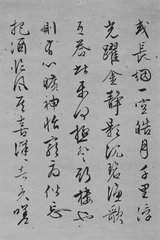 或長烟一空皓月千里浮
光躍金静影沉碧漁歌
互答此樂何極登斯樓也
則有心曠神怡寵辱偕忘
把酒臨風其喜洋洋者矣嗟